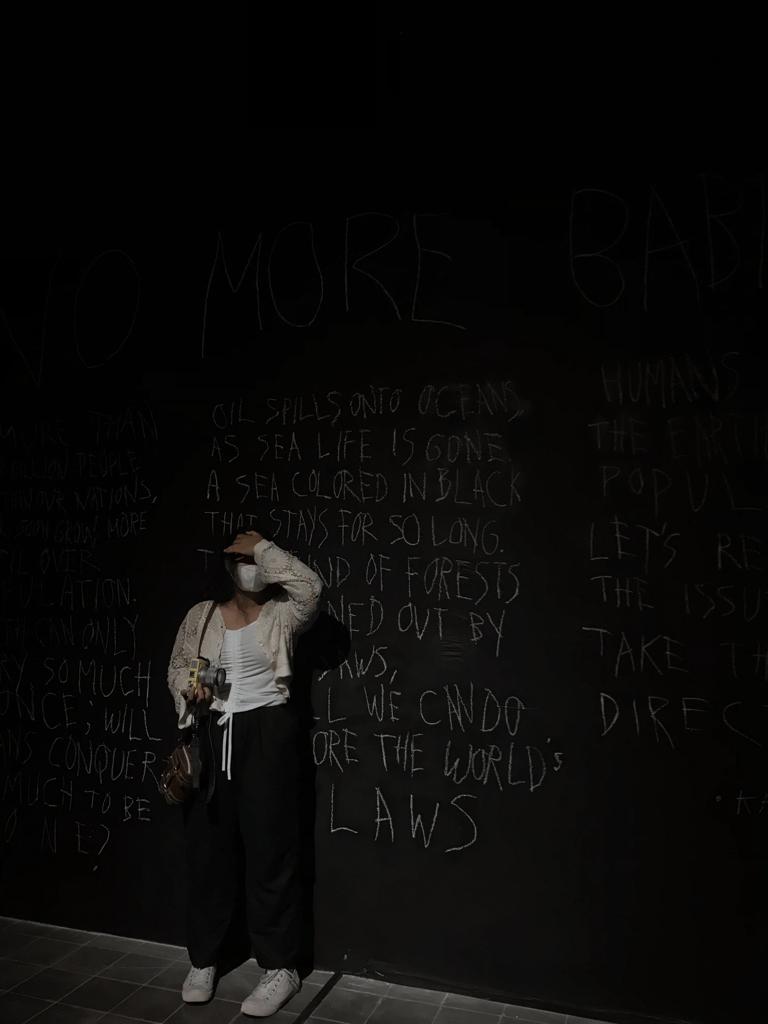 NO MORE BABI
MORE THAN
BILLION PEOPLE
THAN OUR NATIONS,
SOON GROW MORE
TIL OVER
LATION.
CAN ONLY
RY SO MUCH
ONCE; WILL
ANS CONQUER
MUCH TO BE
ONE?
OIL SPILLS ONTO OCEANS,
AS SEA LIFE IS GONE
A SEA COLORED IN BLACK
THAT STAYS FOR SO LONG.
T IND OF FORESTS
NED OUT BY
LAWS,
LL WE CAN DO
ORE THE WORLD'S
LAWS
HUMANS
THE EARTH
POPUL
LET'S RE
THE ISSU
TAKE TH
DIREC